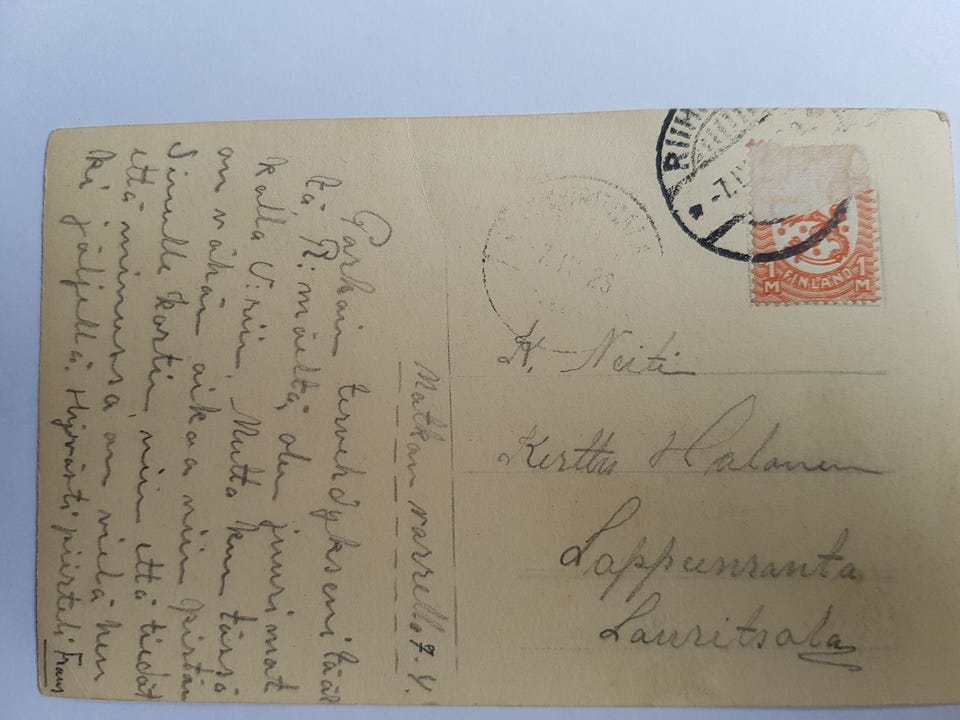 Matkan varrella 7. 4.
Parhain tervehdykseni tääl
tä R:mäeltä, olen juuri mat
kalla V:riin. Mutta kun tässä
on aikaa niin pistän
Sinulle kortin, niin että tiedät
että minussa on vielä hen
ki jäljellä. Hyvästi piirteli Frans
RIIH
-7.IV
7.IV
1 M FINLAND 1 M
N. Neiti
Kerttu Halonen
Lappeenranta
Lauritsala